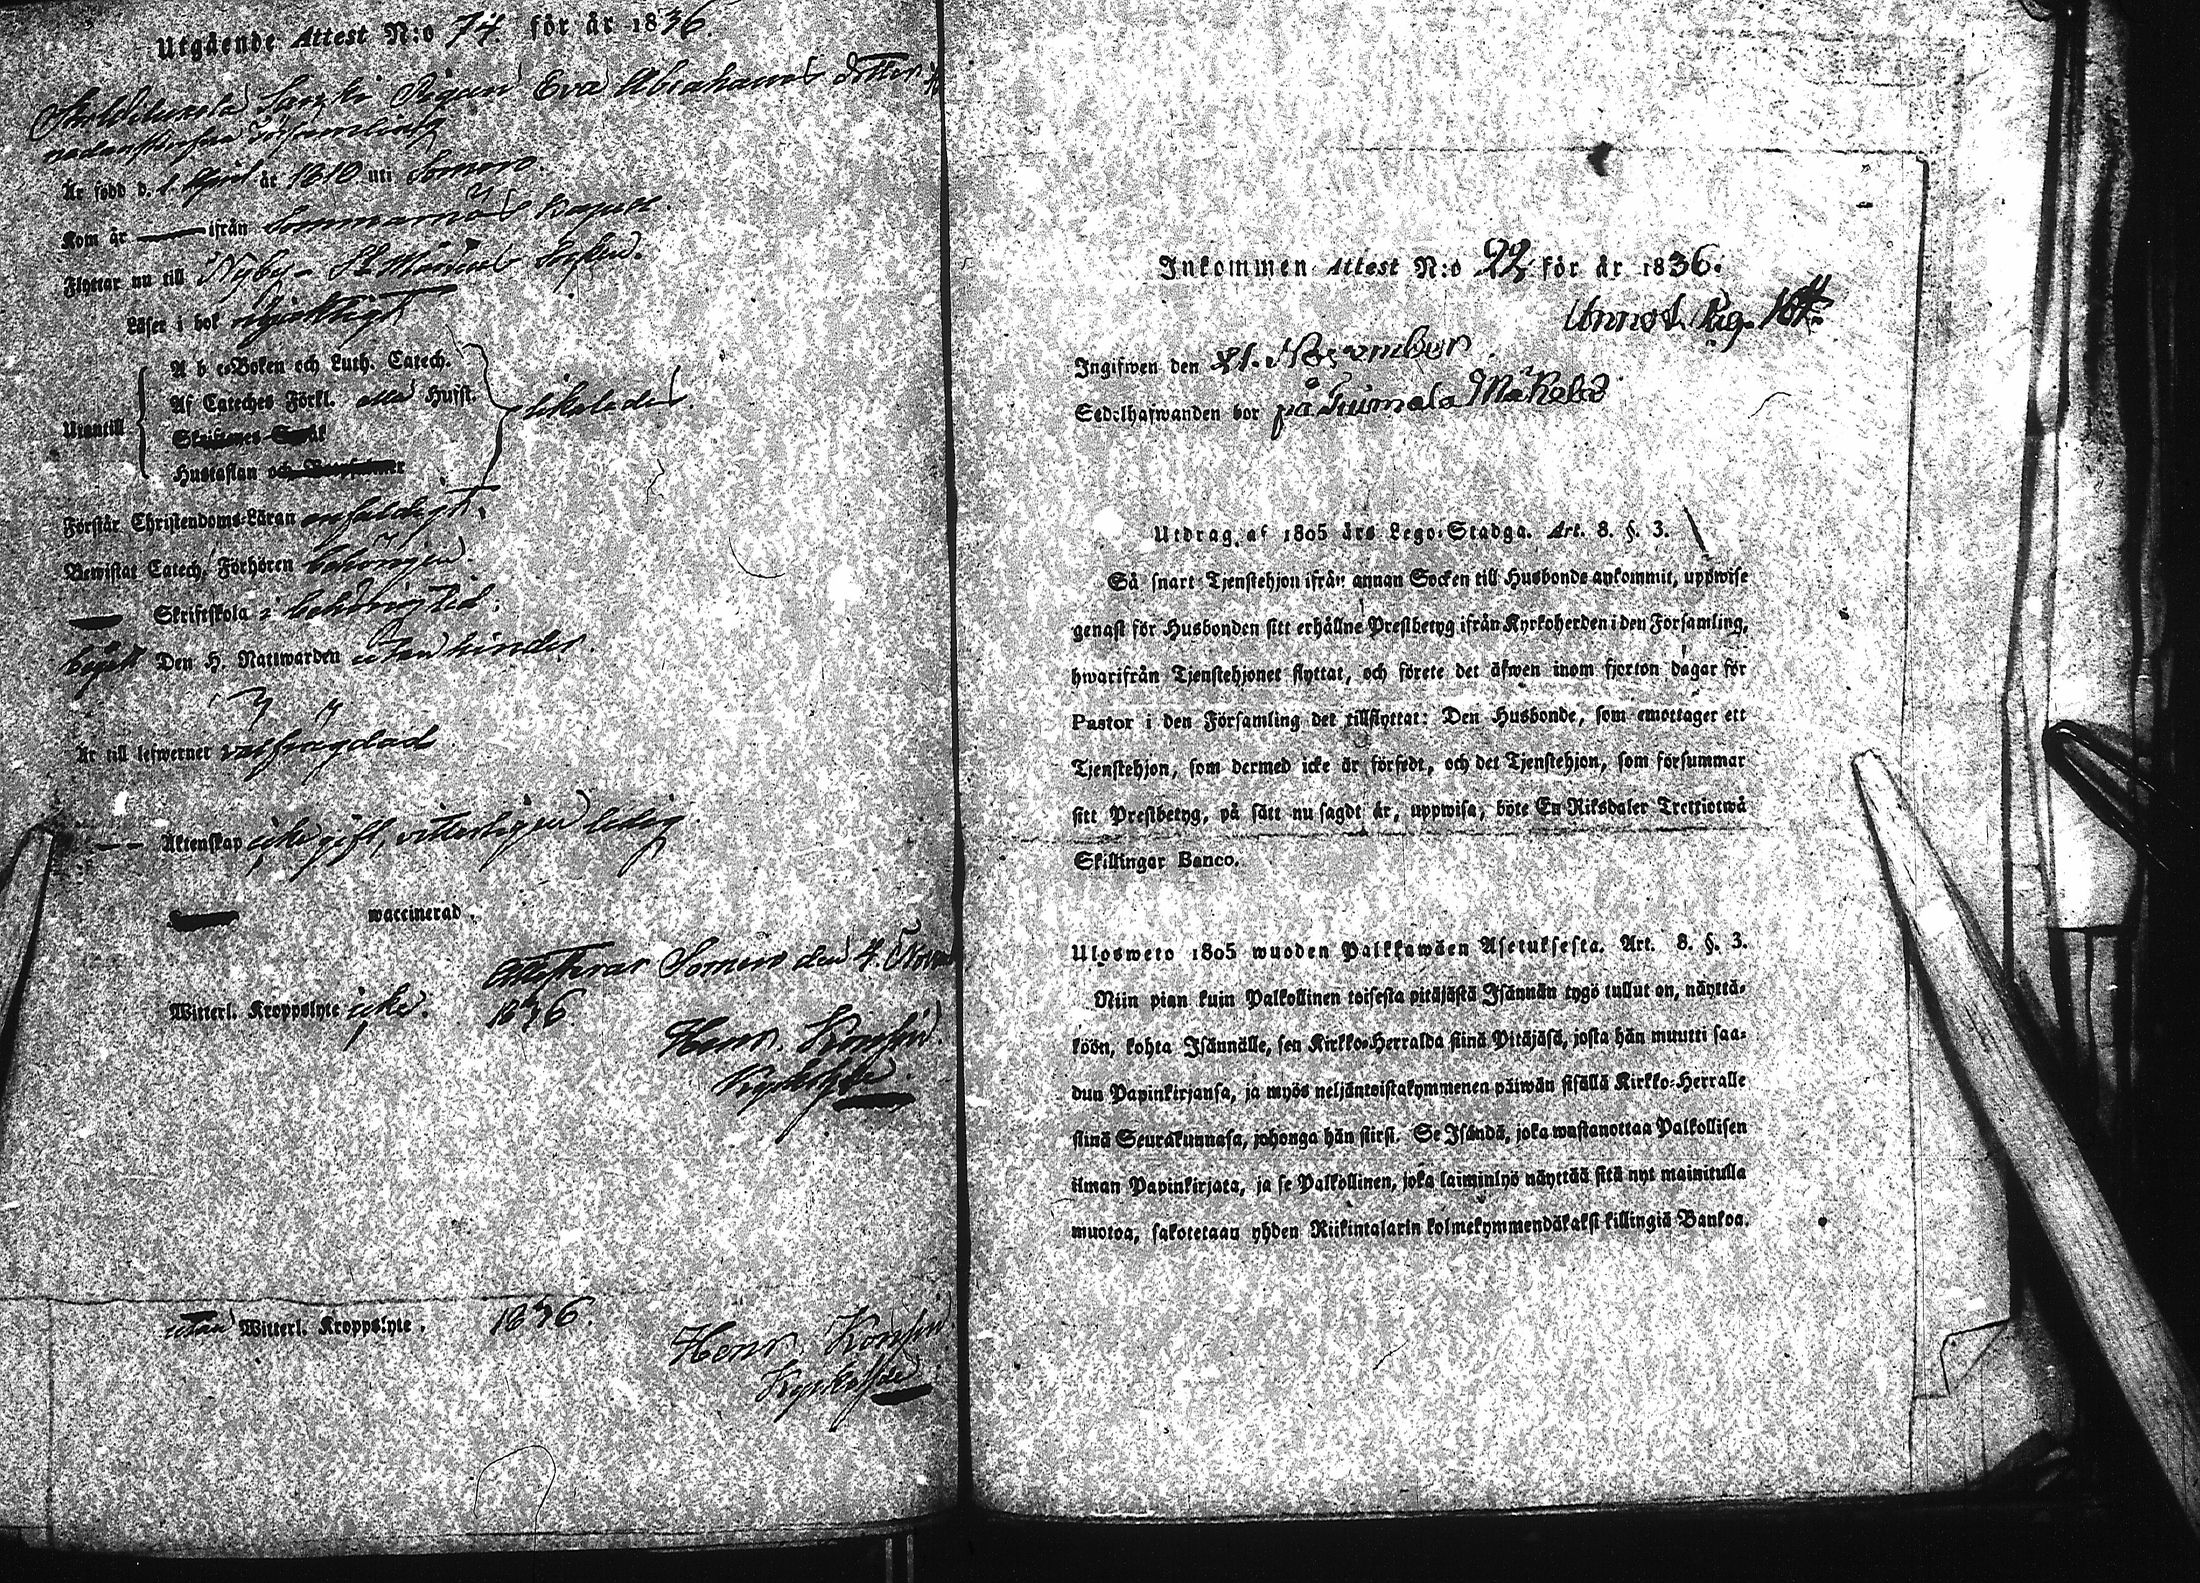 Utgående Attest N:o 74 för år 1836.
Pigan Eva Abrahams dotter
Är född d. 1 April år 1810 uti Somero.
Kom år ifrån Sommarnäs
Flyttar nu till Nyby St Mårtens Socken.
Läser i bok
A b c-Boken och Luth. Catech.
Af Cateches Förkl. alla Husst.
Utantill likaledes.
Hustaflan och
Förstår Christendoms-Läran enfaldigt.
Bewistat Catech. Förhören behörigen.
Skriftskola i behörig tid.
begått Den H. Nattwarden utan hinder.
Är till lefwernet välfrägdad
Äktenskap icke gift, vitterligen ledig
waccinerad.
Attesterar Somero den 4.
Witterl. Kroppslyte icke. 1836
Henr.
Kyrkoherde.
utan Witterl. Kroppslyte. 1836.
Henr.
Kyrkoherde
Inkommen Attest N:o 22 för år 1836.
Annot. Pag.
Ingifwen den 21. November
Sedelhafwanden bor på Mäkelä
Utdrag af 1805 års Lego-Stadga. Art. 8. §. 3.
Så snart Tjenstehjon ifrån annan Socken till Husbonde ankommit, uppwise
genast för Husbonden sitt erhållne Prestbetyg ifrån Kyrkoherden i den Församling,
hwarifrån Tjenstehjonet flyttat, och förete det äfwen inom fjorton dagar för
Pastor i den Församling det tillflyttat: Den Husbonde, som emottager ett
Tjenstehjon, som dermed icke är försedt, och det Tjenstehjon, som försummar
sitt Prestbetyg, på sätt nu sagdt är, uppwisa, böte En Riksdaler Trettiotwå
Skillingar Banco.
Ulosweto 1805 wuoden Palkkawäen Asetuksesta. Art. 8. §. 3.
Niin pian kuin Palkollinen toisesta pitäjästä Isännän tygö tullut on, näyttä-
köön, kohta Isännälle, sen Kirkko-Herralda siinä Pitäjäsä, josta hän muutti saa-
dun Papinkirjansa, ja myös neljäntoistakymmenen päiwän sisällä Kirkko-Herralle
siinä Seurakunnasa, johonga hän siirsi. Se Isändä, joka wastanottaa Palkollisen
ilman Papinkirjata, ja se Palkollinen, joka laiminlyö näyttää sitä nyt mainitulla
muotoa, sakotetaan yhden Riikintalarin kolmekymmendäkaksi killingiä Bankoa.